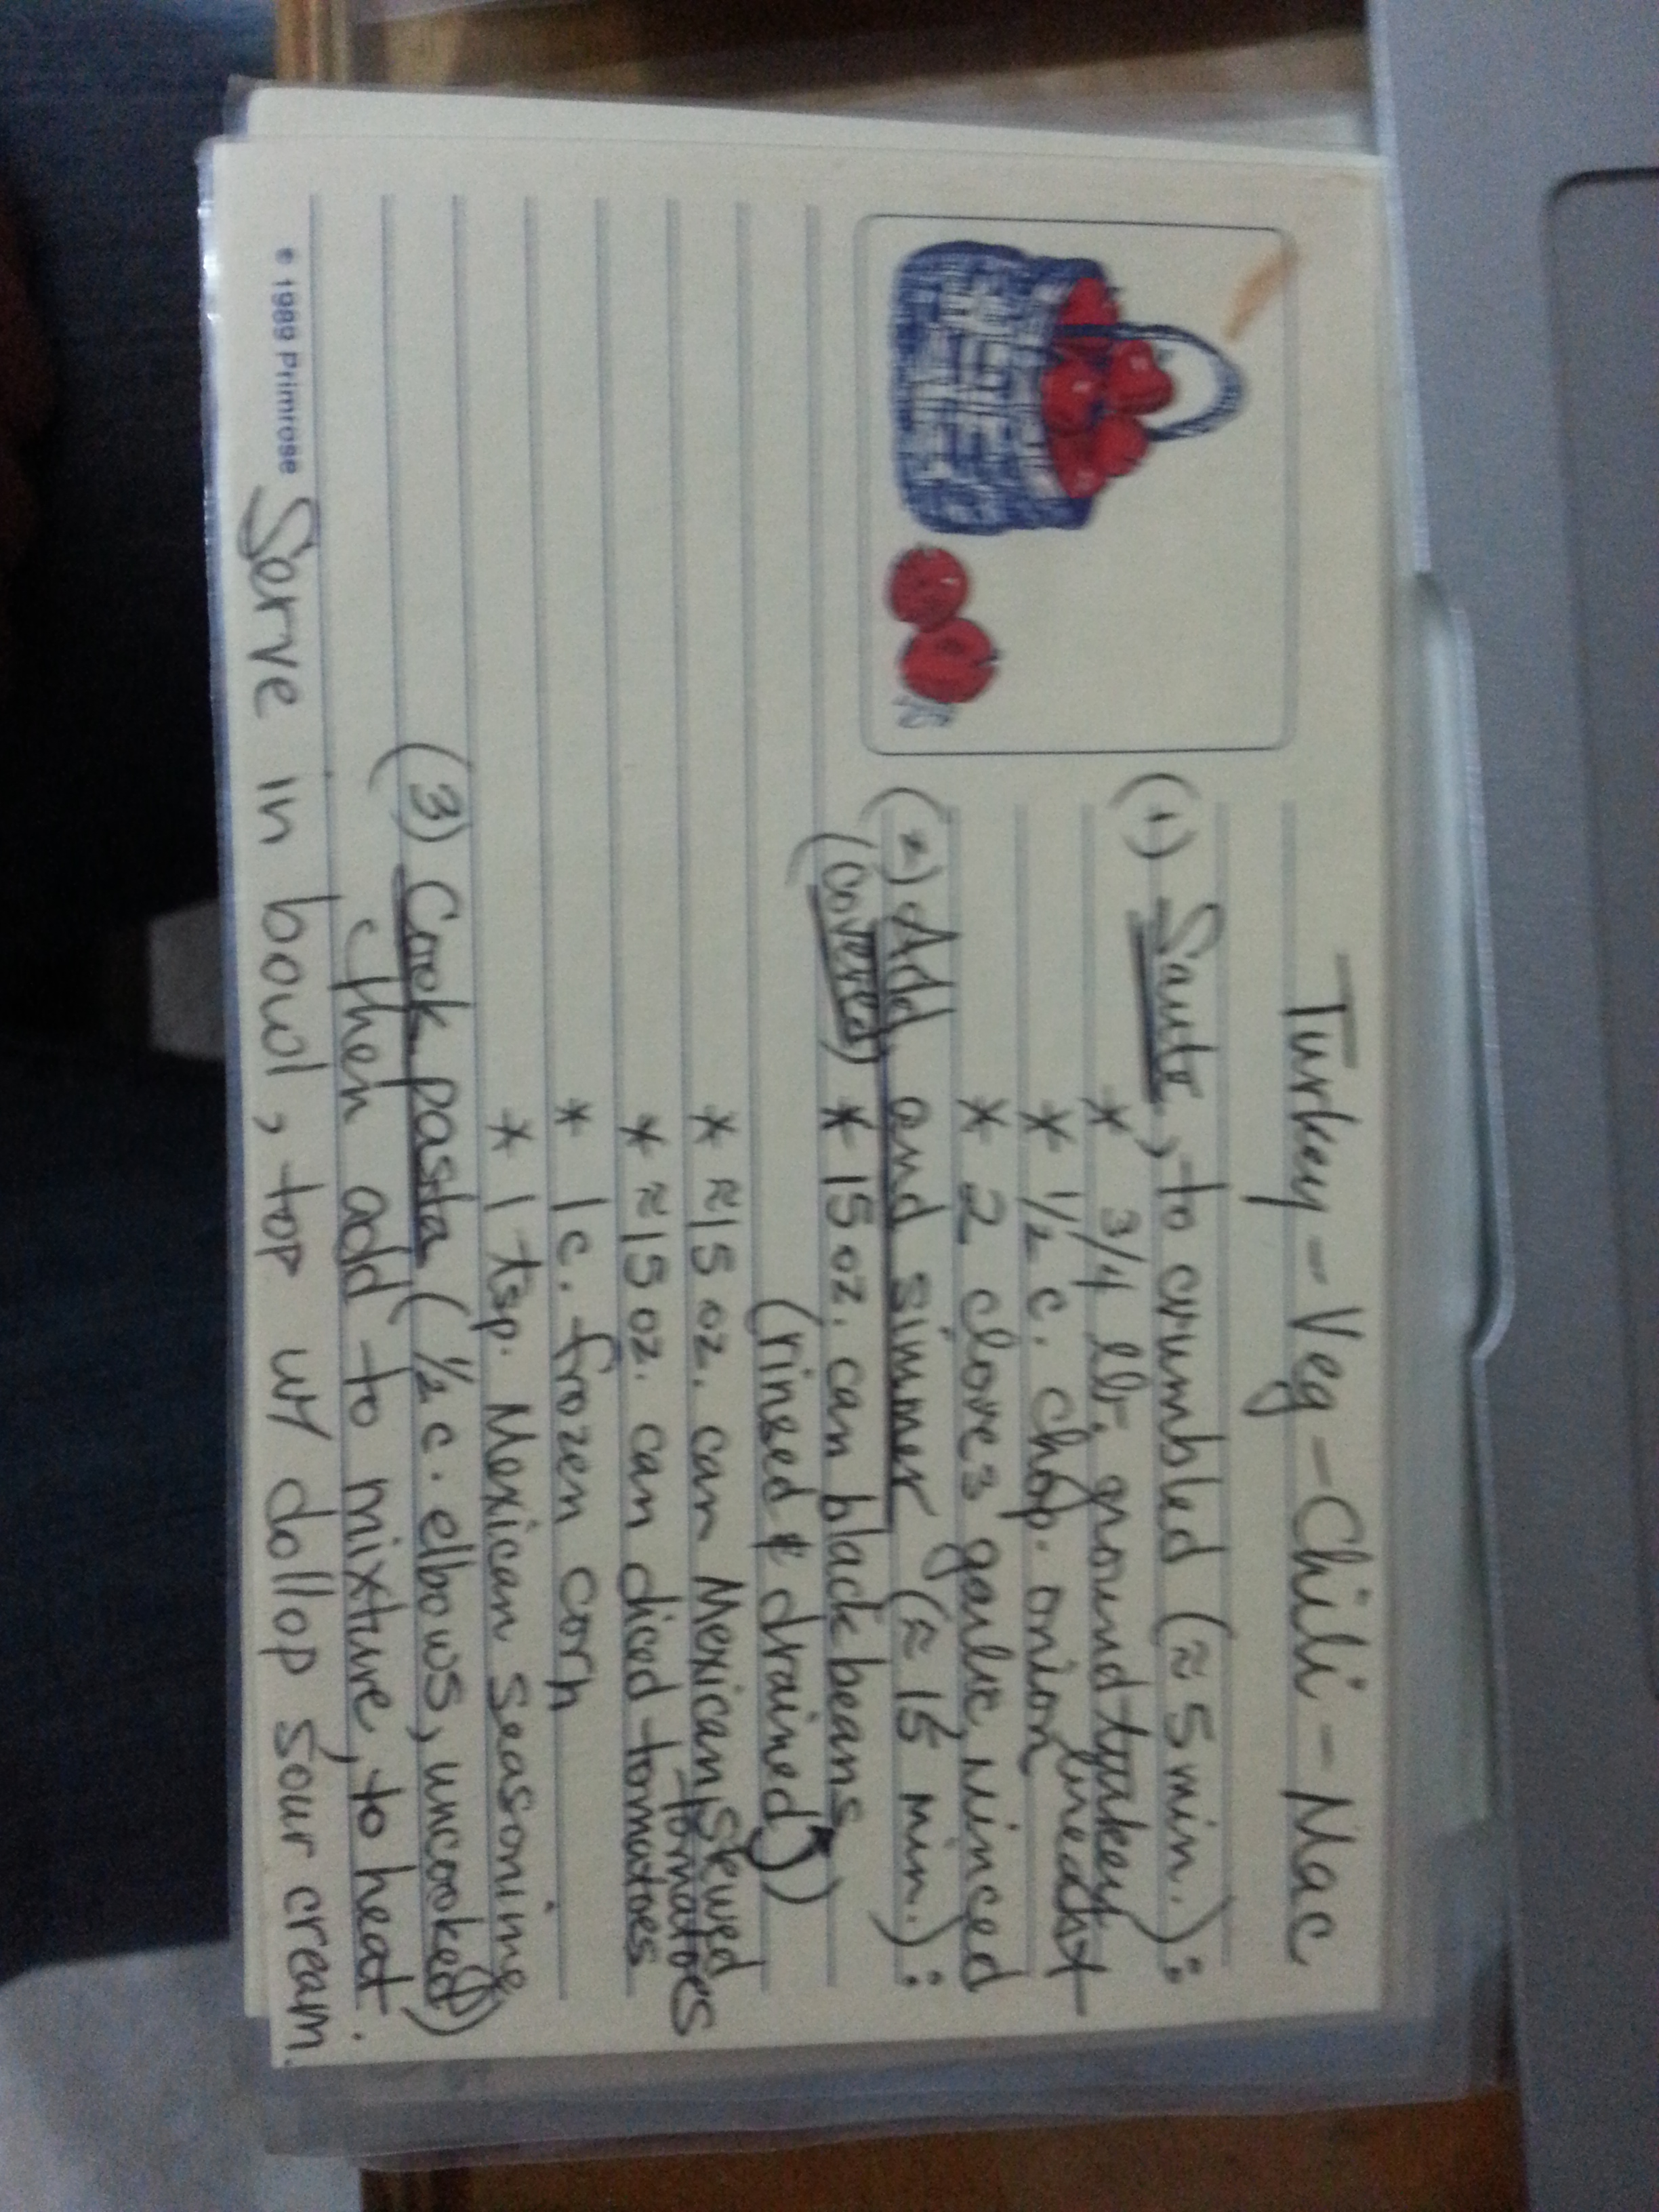 Turkey-Veg-Chili-Mac
(1) Saute, to crumbled (≈ 5 min.):
* 3/4 lb. ground turkey breast
* 1/2 c. chop. onion
* 2 cloves garlic, minced
(2) Add and simmer (≈ 15 min.):
(covered) * 15 oz. can black beans
(rinsed & drained)
* ≈15 oz. can Mexican stewed tomatoes
* ≈15 oz. can diced tomatoes
* 1 c. frozen corn
* 1 tsp. Mexican seasoning
(3) Cook pasta (1/2 c. elbows, uncooked)
then add to mixture, to heat.
Serve in bowl, top w/ dollop sour cream.
© 1989 Primrose